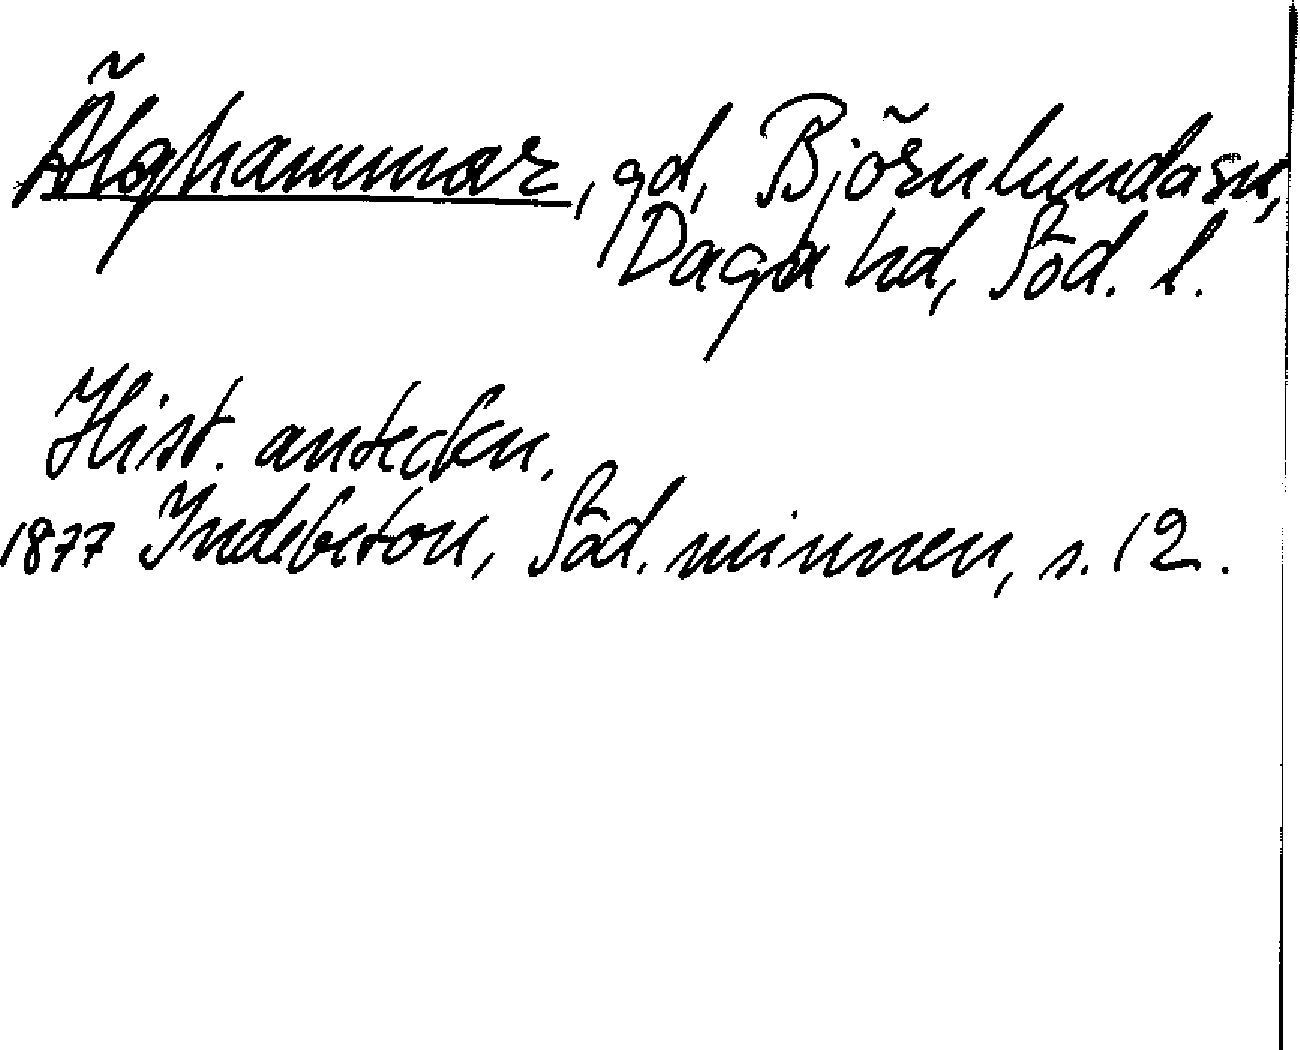 Älghammar, gd, Björnlunda sn,
Daga hd, Söd. l.
Hist. anteckn.
1877 Indebetou, Söd. minnen, s. 12.